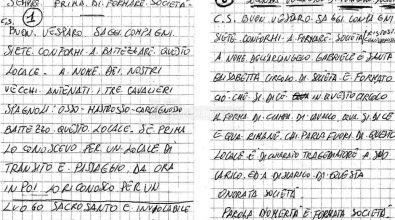 SEMPRE PRIMA DI FORMARE SOCIETÀ
C.S. 1
BUON VESPARO SAGGI COMPAGNI.
SIETE CONFORMI A BATTEZZARE QUESTO
LOCALE. A NOME DEI NOSTRI
VECCHI ANTENATI I TRE CAVALIERI
SPAGNOLI: OSSO-MASTROSSO-CARCAGNOSSO
BATTEZZO QUESTO LOCALE. SE PRIMA
LO CONOSCEVO PER UN LOCALE DI
TRANSITO E PASSAGGIO DA ORA
IN POI LO RICONOSCO PER UN
LUOGO SACROSANTO E INVIOLABILE
C.S. BUON VESPARO SAGGI COMPAGNI
SIETE CONFORMI A FORMARE SOCIETÀ
A NOME GABRIELE E SANTA
ELISABETTA CIRCOLO DI SOCIETÀ È FORMATO
CIÒ CHE SI DICE IN QUESTO CIRCOLO
A FORMA DI CAVALLO, QUA SI DICE
E QUA RIMANE, CHI PARLA FUORI DI QUESTO
LOCALE È DICHIARATO TRAGEDIATORE A SUO
CARICO, ED A DISCARICO DI QUESTA
ONORATA SOCIETÀ
PAROLA D'OMERTÀ È FORMATA SOCIETÀ